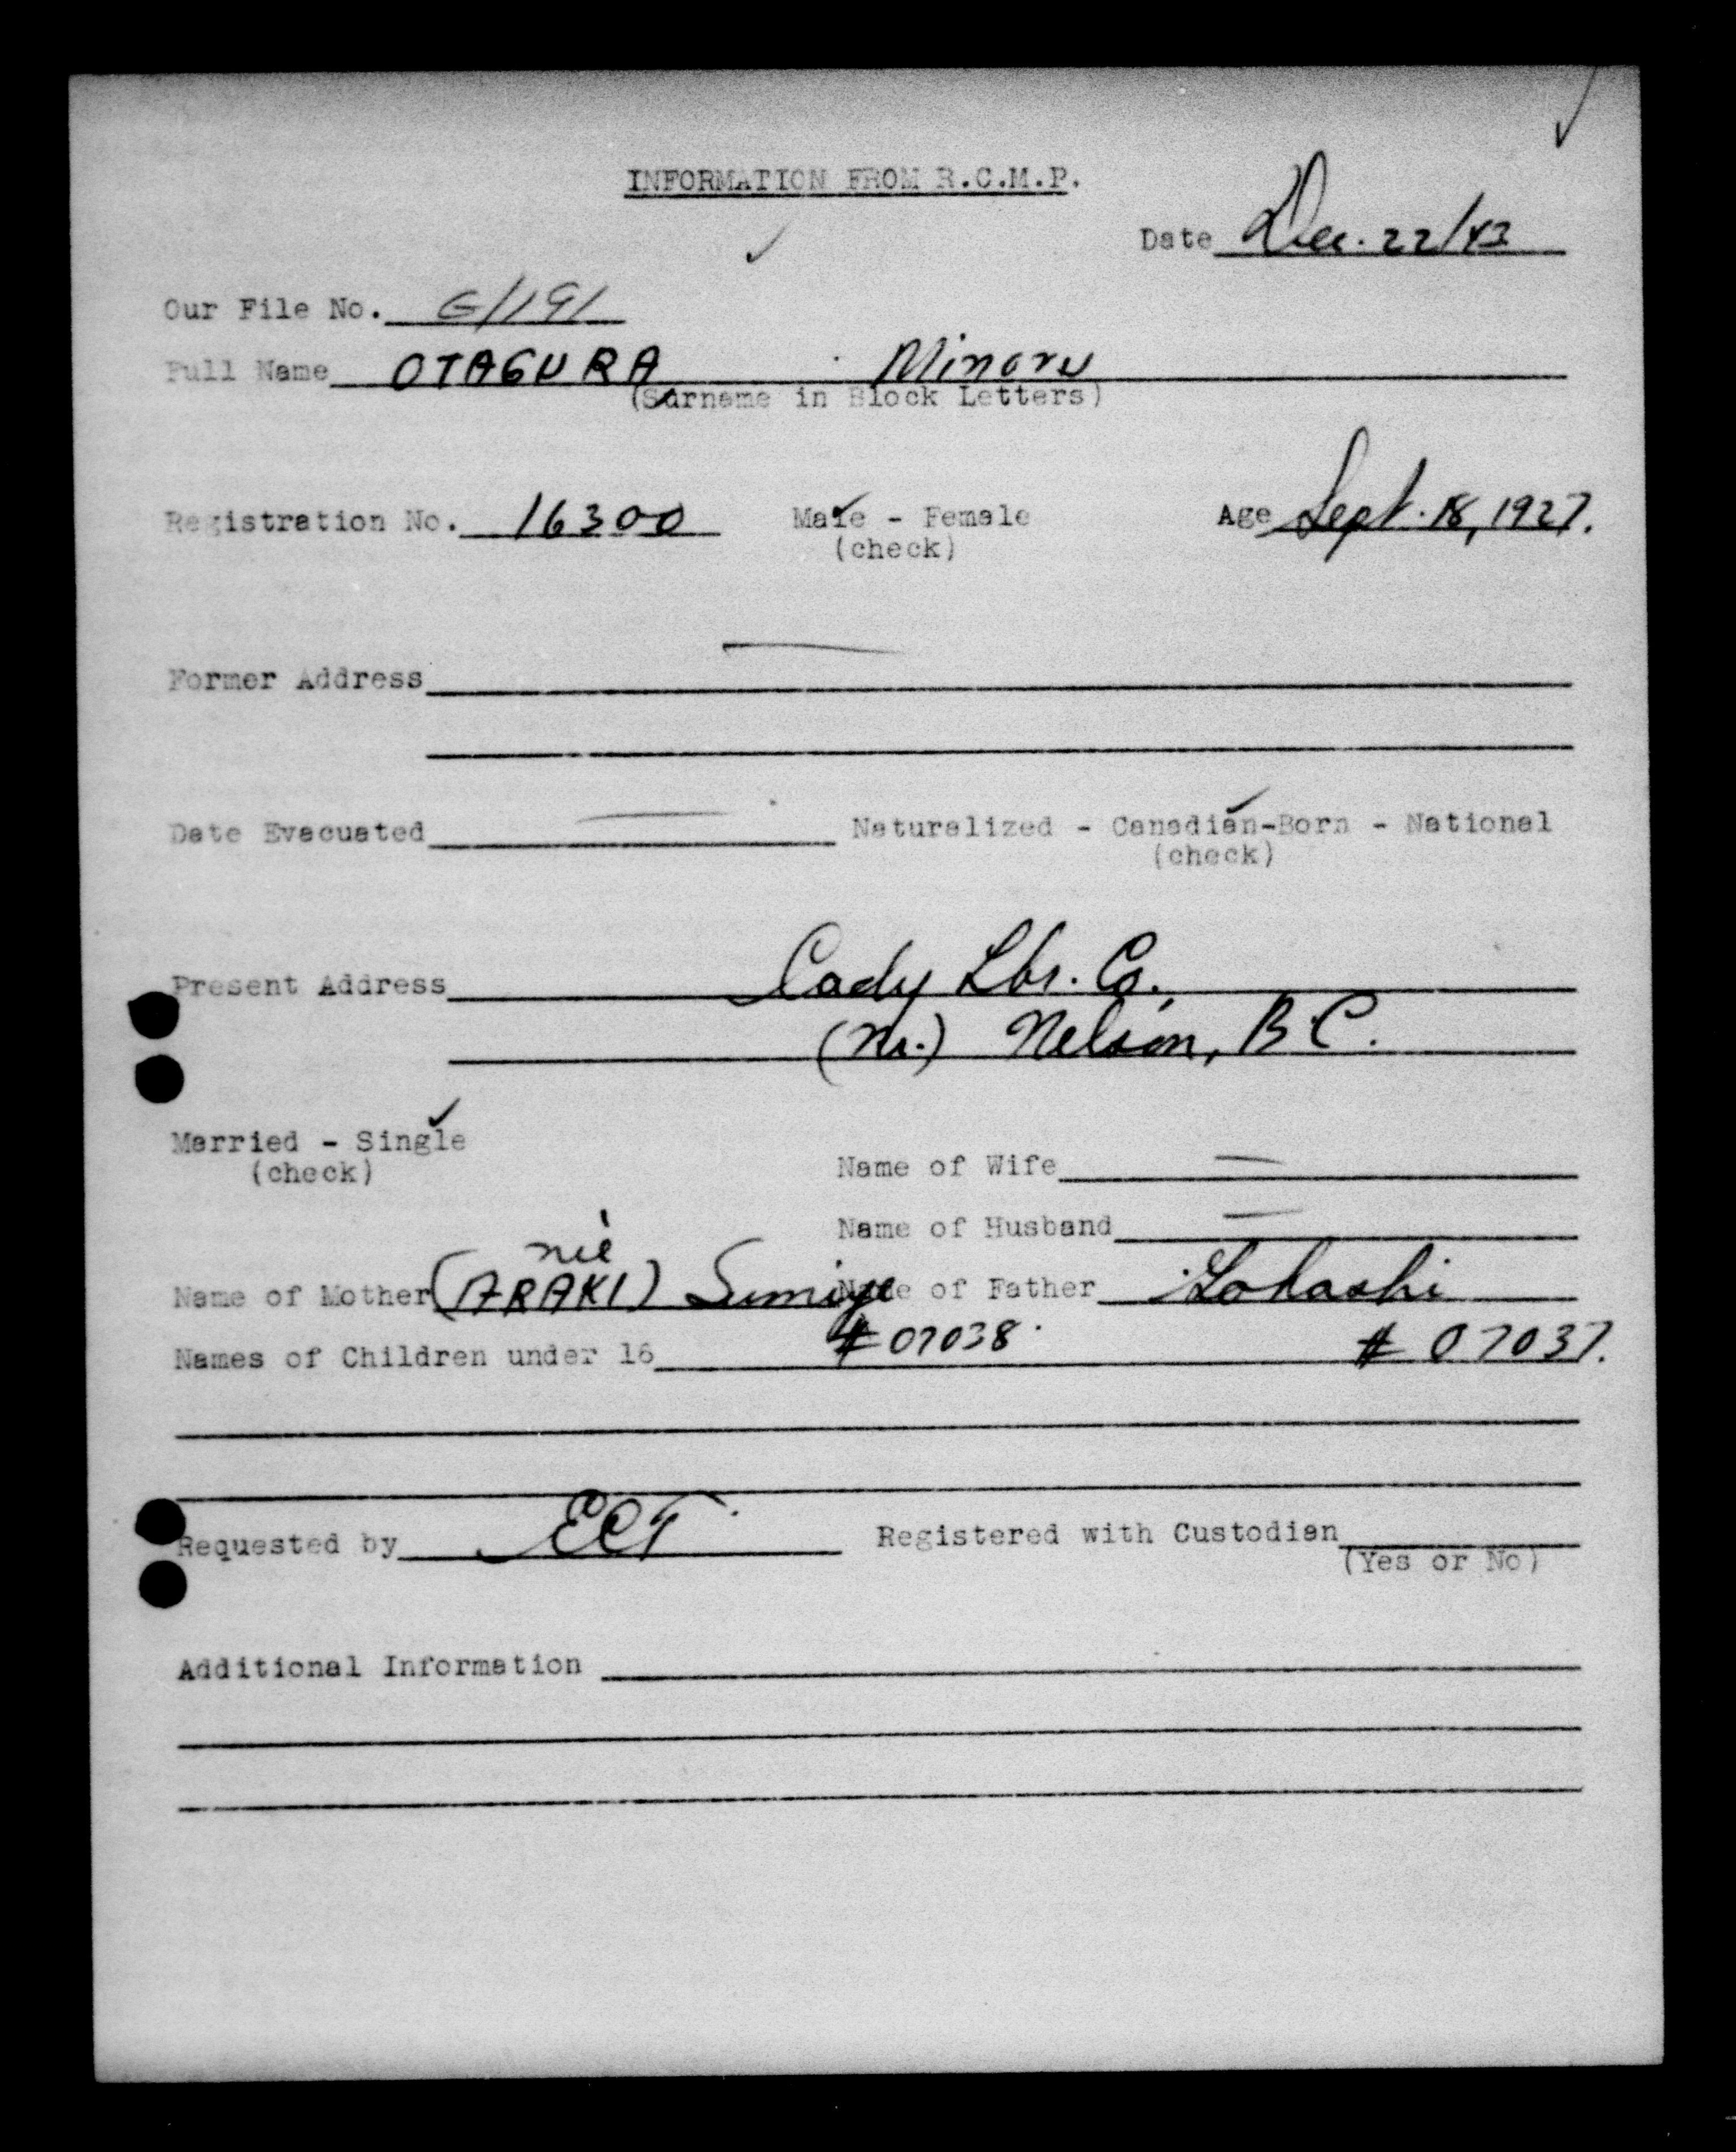 INFORMATION FROM R.C.M.P.
Date Dec. 22/43
Our File No. G/191
Full Name OTAGURA Minoru
(Surname in Block Letters)
Registration No. 16300 Male - Female Age Sept. 18, 1927.
(check)
Former Address
Date Evacuated Naturalized - Canadian-Born - National
(check)
Present Address Cady Lbr. Co.,
(nr.) Nelson, B.C.
Married - Single
(check)
Name of Wife
Name of Husband
née
Name of Mother (ARAKI) Sumiye Name of Father
# 07038 # 07037.
Names of Children under 16
Requested by ECT Registered with Custodian
(Yes or No)
Additional Information